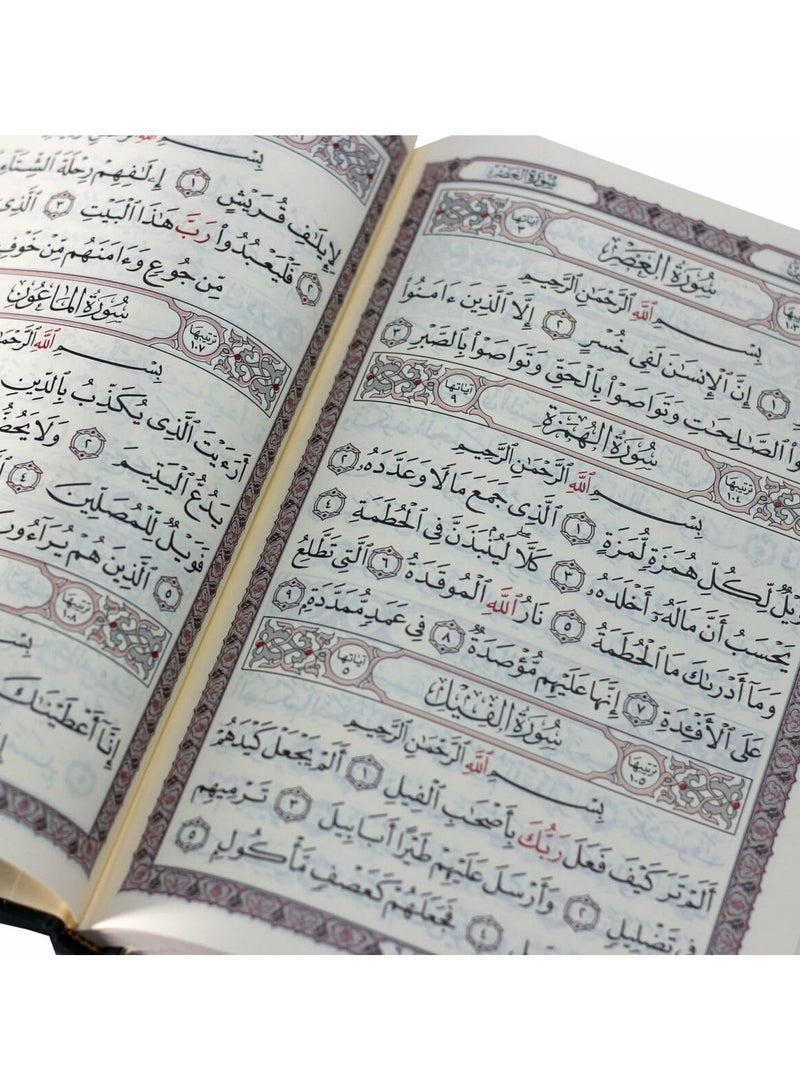 سُورَةُ العَصْرِ
سُورَةُ العَصْرِ آياتها ٣
بِسْمِ ٱللَّهِ ٱلرَّحْمَٰنِ ٱلرَّحِيمِ
١ إِنَّ ٱلْإِنسَٰنَ لَفِى خُسْرٍ ٢ إِلَّا ٱلَّذِينَ ءَامَنُوا۟
ٱلصَّٰلِحَٰتِ وَتَوَاصَوْا۟ بِٱلْحَقِّ وَتَوَاصَوْا۟ بِٱلصَّبْرِ ٣
ترتيبها ١٠٤ سُورَةُ الهُمَزَةِ آياتها ٩
بِسْمِ ٱللَّهِ ٱلرَّحْمَٰنِ ٱلرَّحِيمِ
وَيْلٌ لِّكُلِّ هُمَزَةٍ لُّمَزَةٍ ١ ٱلَّذِى جَمَعَ مَالًا وَعَدَّدَهُۥ ٢
يَحْسَبُ أَنَّ مَالَهُۥٓ أَخْلَدَهُۥ ٣ كَلَّا ۖ لَيُنۢبَذَنَّ فِى ٱلْحُطَمَةِ ٤
وَمَآ أَدْرَىٰكَ مَا ٱلْحُطَمَةُ ٥ نَارُ ٱللَّهِ ٱلْمُوقَدَةُ ٦ ٱلَّتِى تَطَّلِعُ
عَلَى ٱلْأَفْـِٔدَةِ ٧ إِنَّهَا عَلَيْهِم مُّؤْصَدَةٌ ٨ فِى عَمَدٍ مُّمَدَّدَةٍۭ ٩
ترتيبها ١٠٥ سُورَةُ الفِيلِ آياتها ٥
بِسْمِ ٱللَّهِ ٱلرَّحْمَٰنِ ٱلرَّحِيمِ
أَلَمْ تَرَ كَيْفَ فَعَلَ رَبُّكَ بِأَصْحَٰبِ ٱلْفِيلِ ١ أَلَمْ يَجْعَلْ كَيْدَهُمْ
فِى تَضْلِيلٍ ٢ وَأَرْسَلَ عَلَيْهِمْ طَيْرًا أَبَابِيلَ ٣ تَرْمِيهِم
٤ فَجَعَلَهُمْ كَعَصْفٍ مَّأْكُولٍۭ ٥
بِسْمِ ٱللَّهِ
لِإِيلَٰفِ قُرَيْشٍ ١ إِۦلَٰفِهِمْ رِحْلَةَ ٱلشِّتَآءِ
٢ فَلْيَعْبُدُوا۟ رَبَّ هَٰذَا ٱلْبَيْتِ ٣ ٱلَّذِىٓ
مِّن جُوعٍ وَءَامَنَهُم مِّنْ خَوْفٍۭ
ترتيبها ١٠٧ سُورَةُ المَاعُونِ
بِسْمِ ٱللَّهِ
أَرَءَيْتَ ٱلَّذِى يُكَذِّبُ بِٱلدِّينِ
يَدُعُّ ٱلْيَتِيمَ ٢ وَلَا يَحُضُّ
فَوَيْلٌ لِّلْمُصَلِّينَ ٤
٥ ٱلَّذِينَ هُمْ يُرَآءُونَ
ترتيبها ١٠٨
بِسْمِ
إِنَّآ أَعْطَيْنَٰكَ